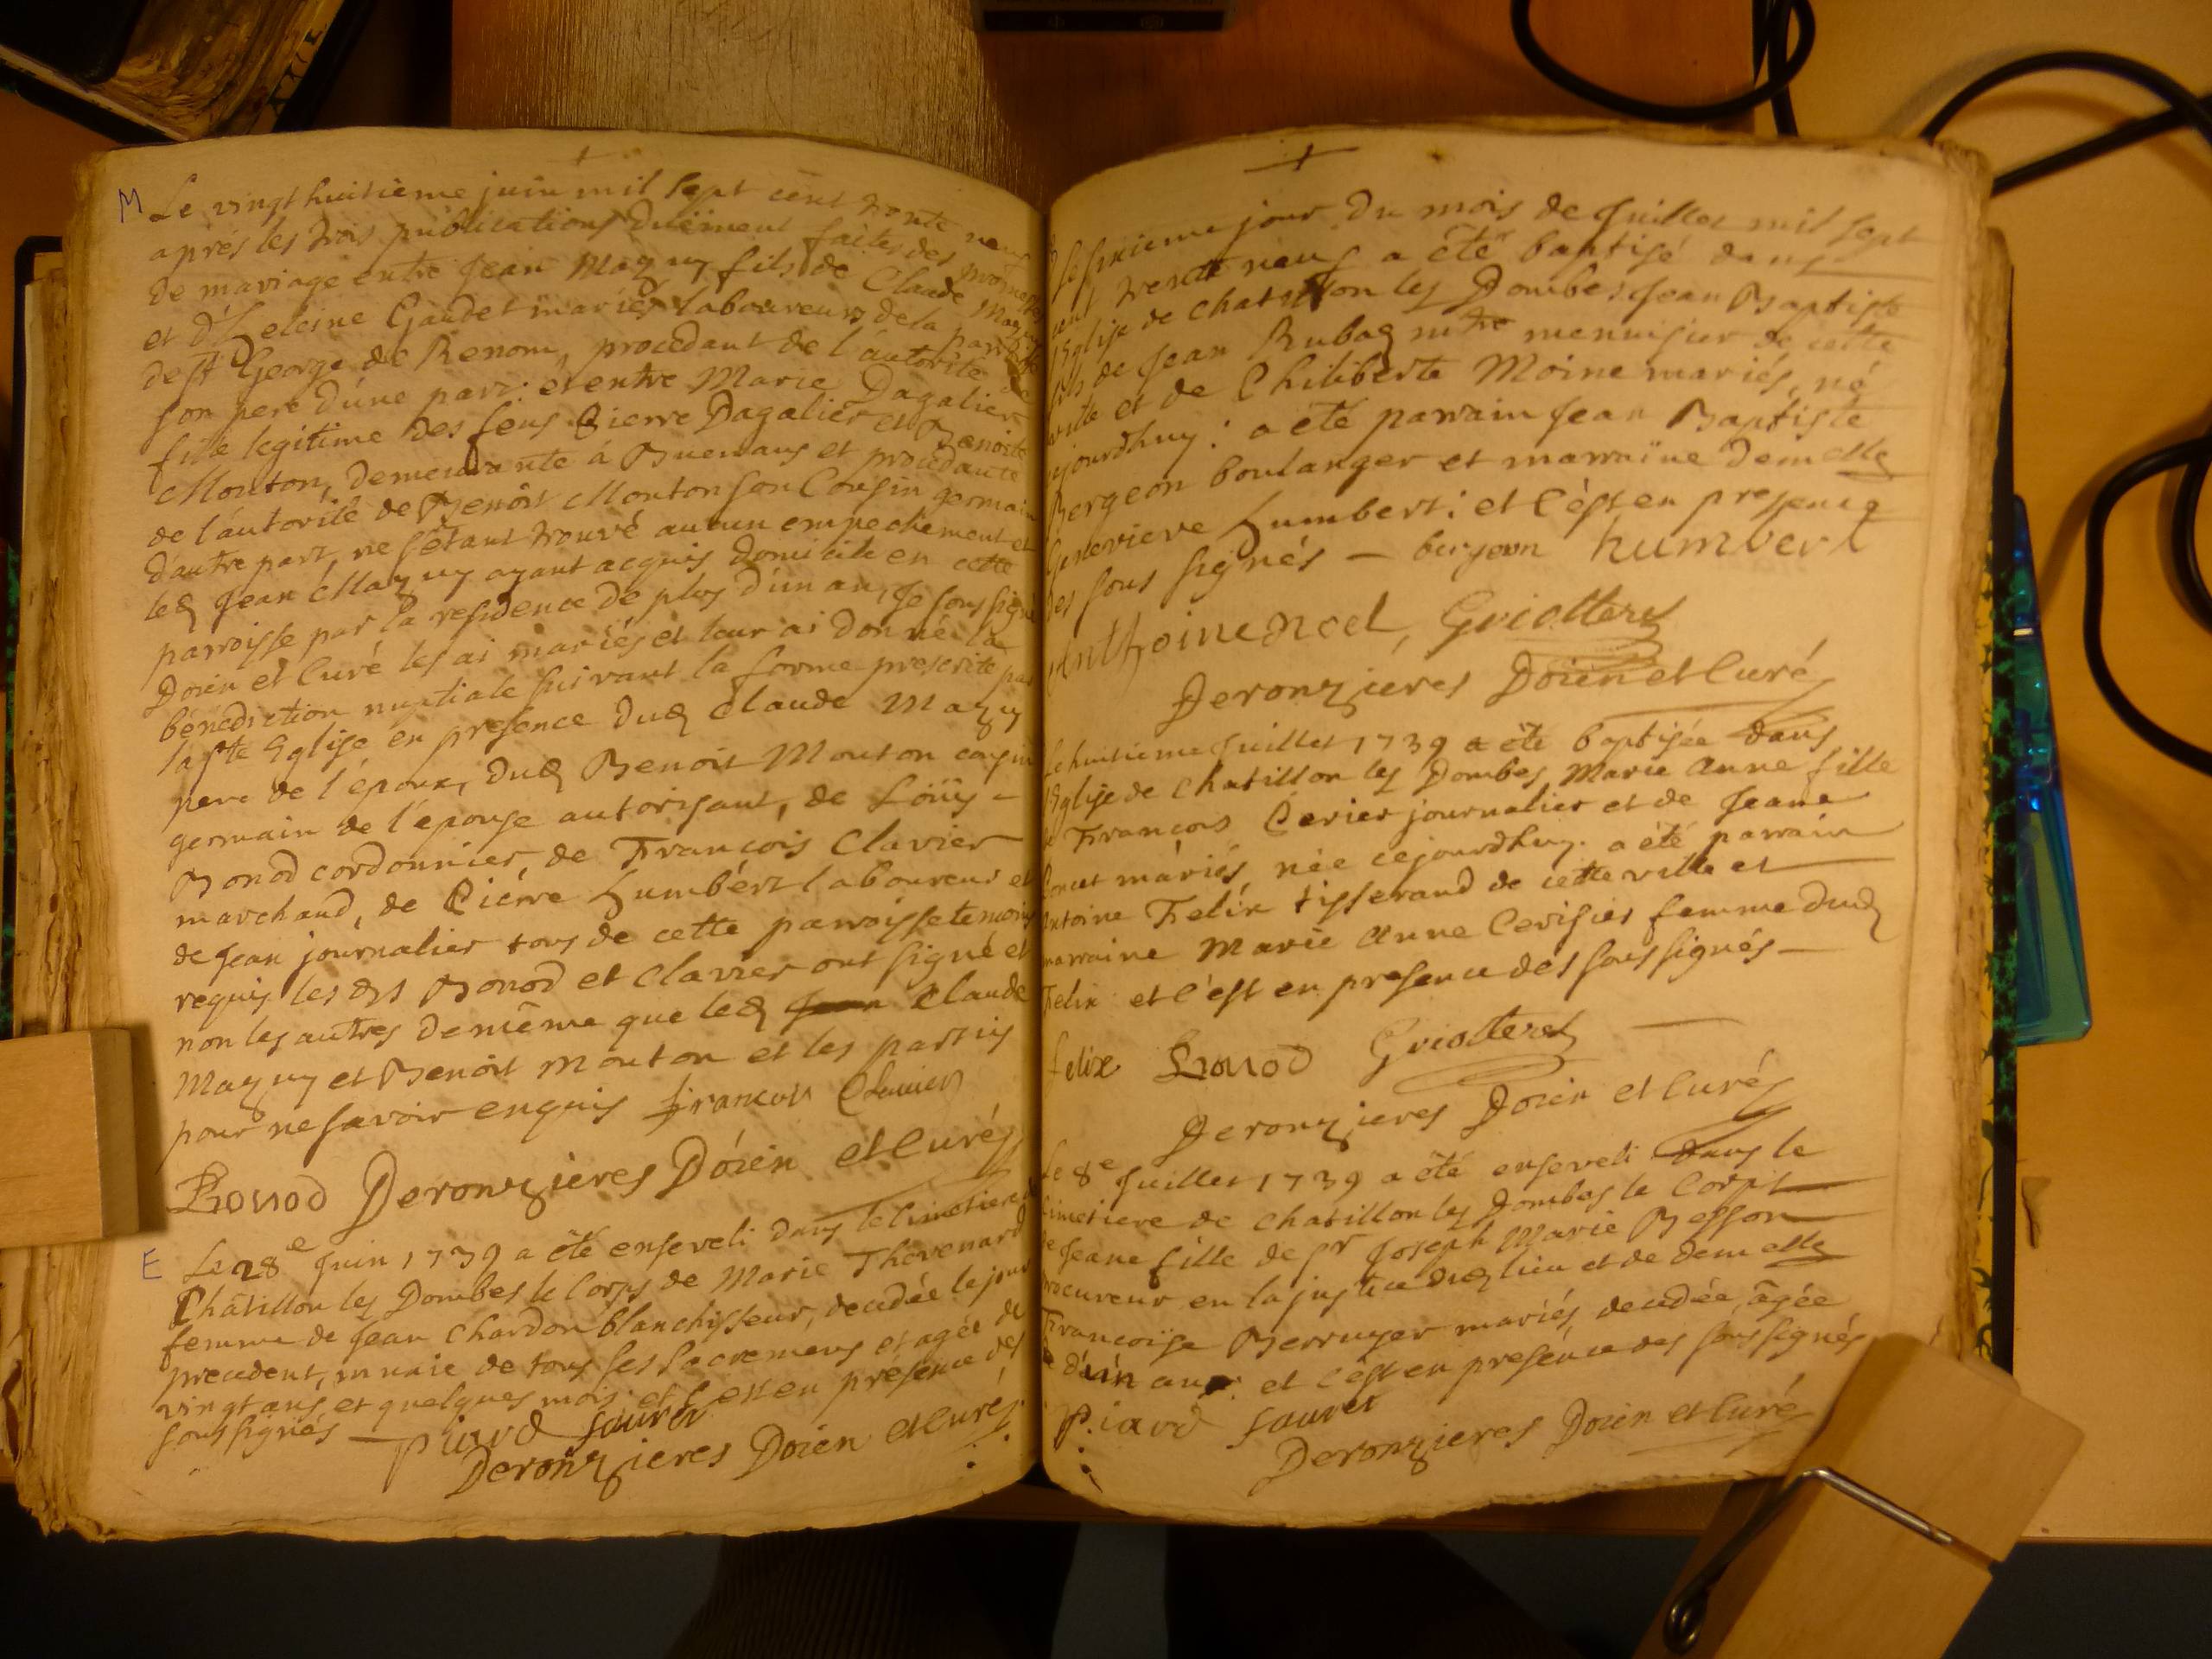 M Le vingt huitième juin mil sept cent trente neuf
après les trois publications düement faites des promesses
de mariage entre Jean Mazuy fils de Claude Mazuy
et d'heleine Gaudet mariés laboureurs de la parroisse
de st George de Renom, procedant de l'autorité de
son pere d'une part: et entre Marie Dagalier
fille legitime des feus Pierre Dagalier et Benoite
Mouton, demeurante à Buenans et procedante
de l'autorité de Benoit Mouton son Cousin germain
d'autre part, ne s'étant trouvé aucun empechement et
led Jean Mazuy ayant acquis domicile en cette
parroisse par la residence de plus d'un an, Je soussigné
Doien et Curé les ai mariés et leur ai donné la
bénediction nuptiale suivant la forme prescrite par
la ste Eglise en presence dud Claude Mazuy
pere de l'époux, dud Benoit Mouton cousin
germain de l'épouse autorisant, de Loüis
Bonod cordonnier, de François Clavier
marchand, de Piérre humbért laboureur et
de Jean journalier tous de cette parroisse temoins
requis les dts Bonod et Clavier ont signé et
non les autres de même que led Jean Claude
Mazuy et Benoit Mouton et les partis
pour ne savoir enquis francois Clavier
Bonod Deronzieres Doien et Curé
E Le 28e Juin 1739 a été enseveli dans le Cimetiere de
Châtillon les Dombes le Corps de Marie Thevenard
femme de Jean Chardon blanchisseur, decedée le jour
precedent, munie de tous ses sacremens et agée de
vingt ans et quelques mois: et c'est en présence des
soussignés — piard sauret
Deronzieres Doien et Curé
Le sixieme jour du mois de Juillet mil sept
cent trente neuf a été baptisé dans
l'Eglise de Chatillon les Dombes Jean Baptiste
fils de Jean Rubaq mtre menuisier de cette
ville et de Philiberte Moine mariés, né
cejourdhuy: a été parrain Jean Baptiste
Bergeon boulanger et marraine demelle
Genevieve humbert: et c'est en presence
des sous signés — berjeon humbert
Anthoine noel, Griotteret
Deronzieres Doien et Curé
Le huitieme Juillet 1739 a été baptisée dans
l'Eglise de Chatillon les Dombes Marie Anne fille
de François Cerier journalier et de Jeane
Concet mariés, née cejourdhuy. a été parrain
Antoine Felix tisserand de cette ville et
marraine Marie Anne Cerisier femme dud
Felix: et c'est en presence des sous signés —
felix Bonod Griotteret
Deronzieres Doien et Curé
Le 8e Juillet 1739 a été enseveli dans le
Cimetiere de Chatillon les Dombes le Corps
de Jeane fille de sr Joseph Marie Besson
procureur en la justice dud lieu et de demelle
Françoise Berruyer mariés decedée âgée
d'un an: et c'est en presence des soussignés
Piard sauret
Deronzieres Doien et Curé